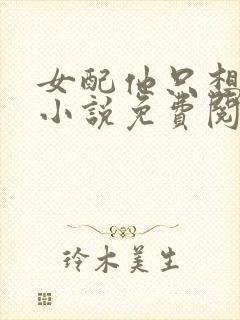 女配她只想
小說免費閱
玲木美生